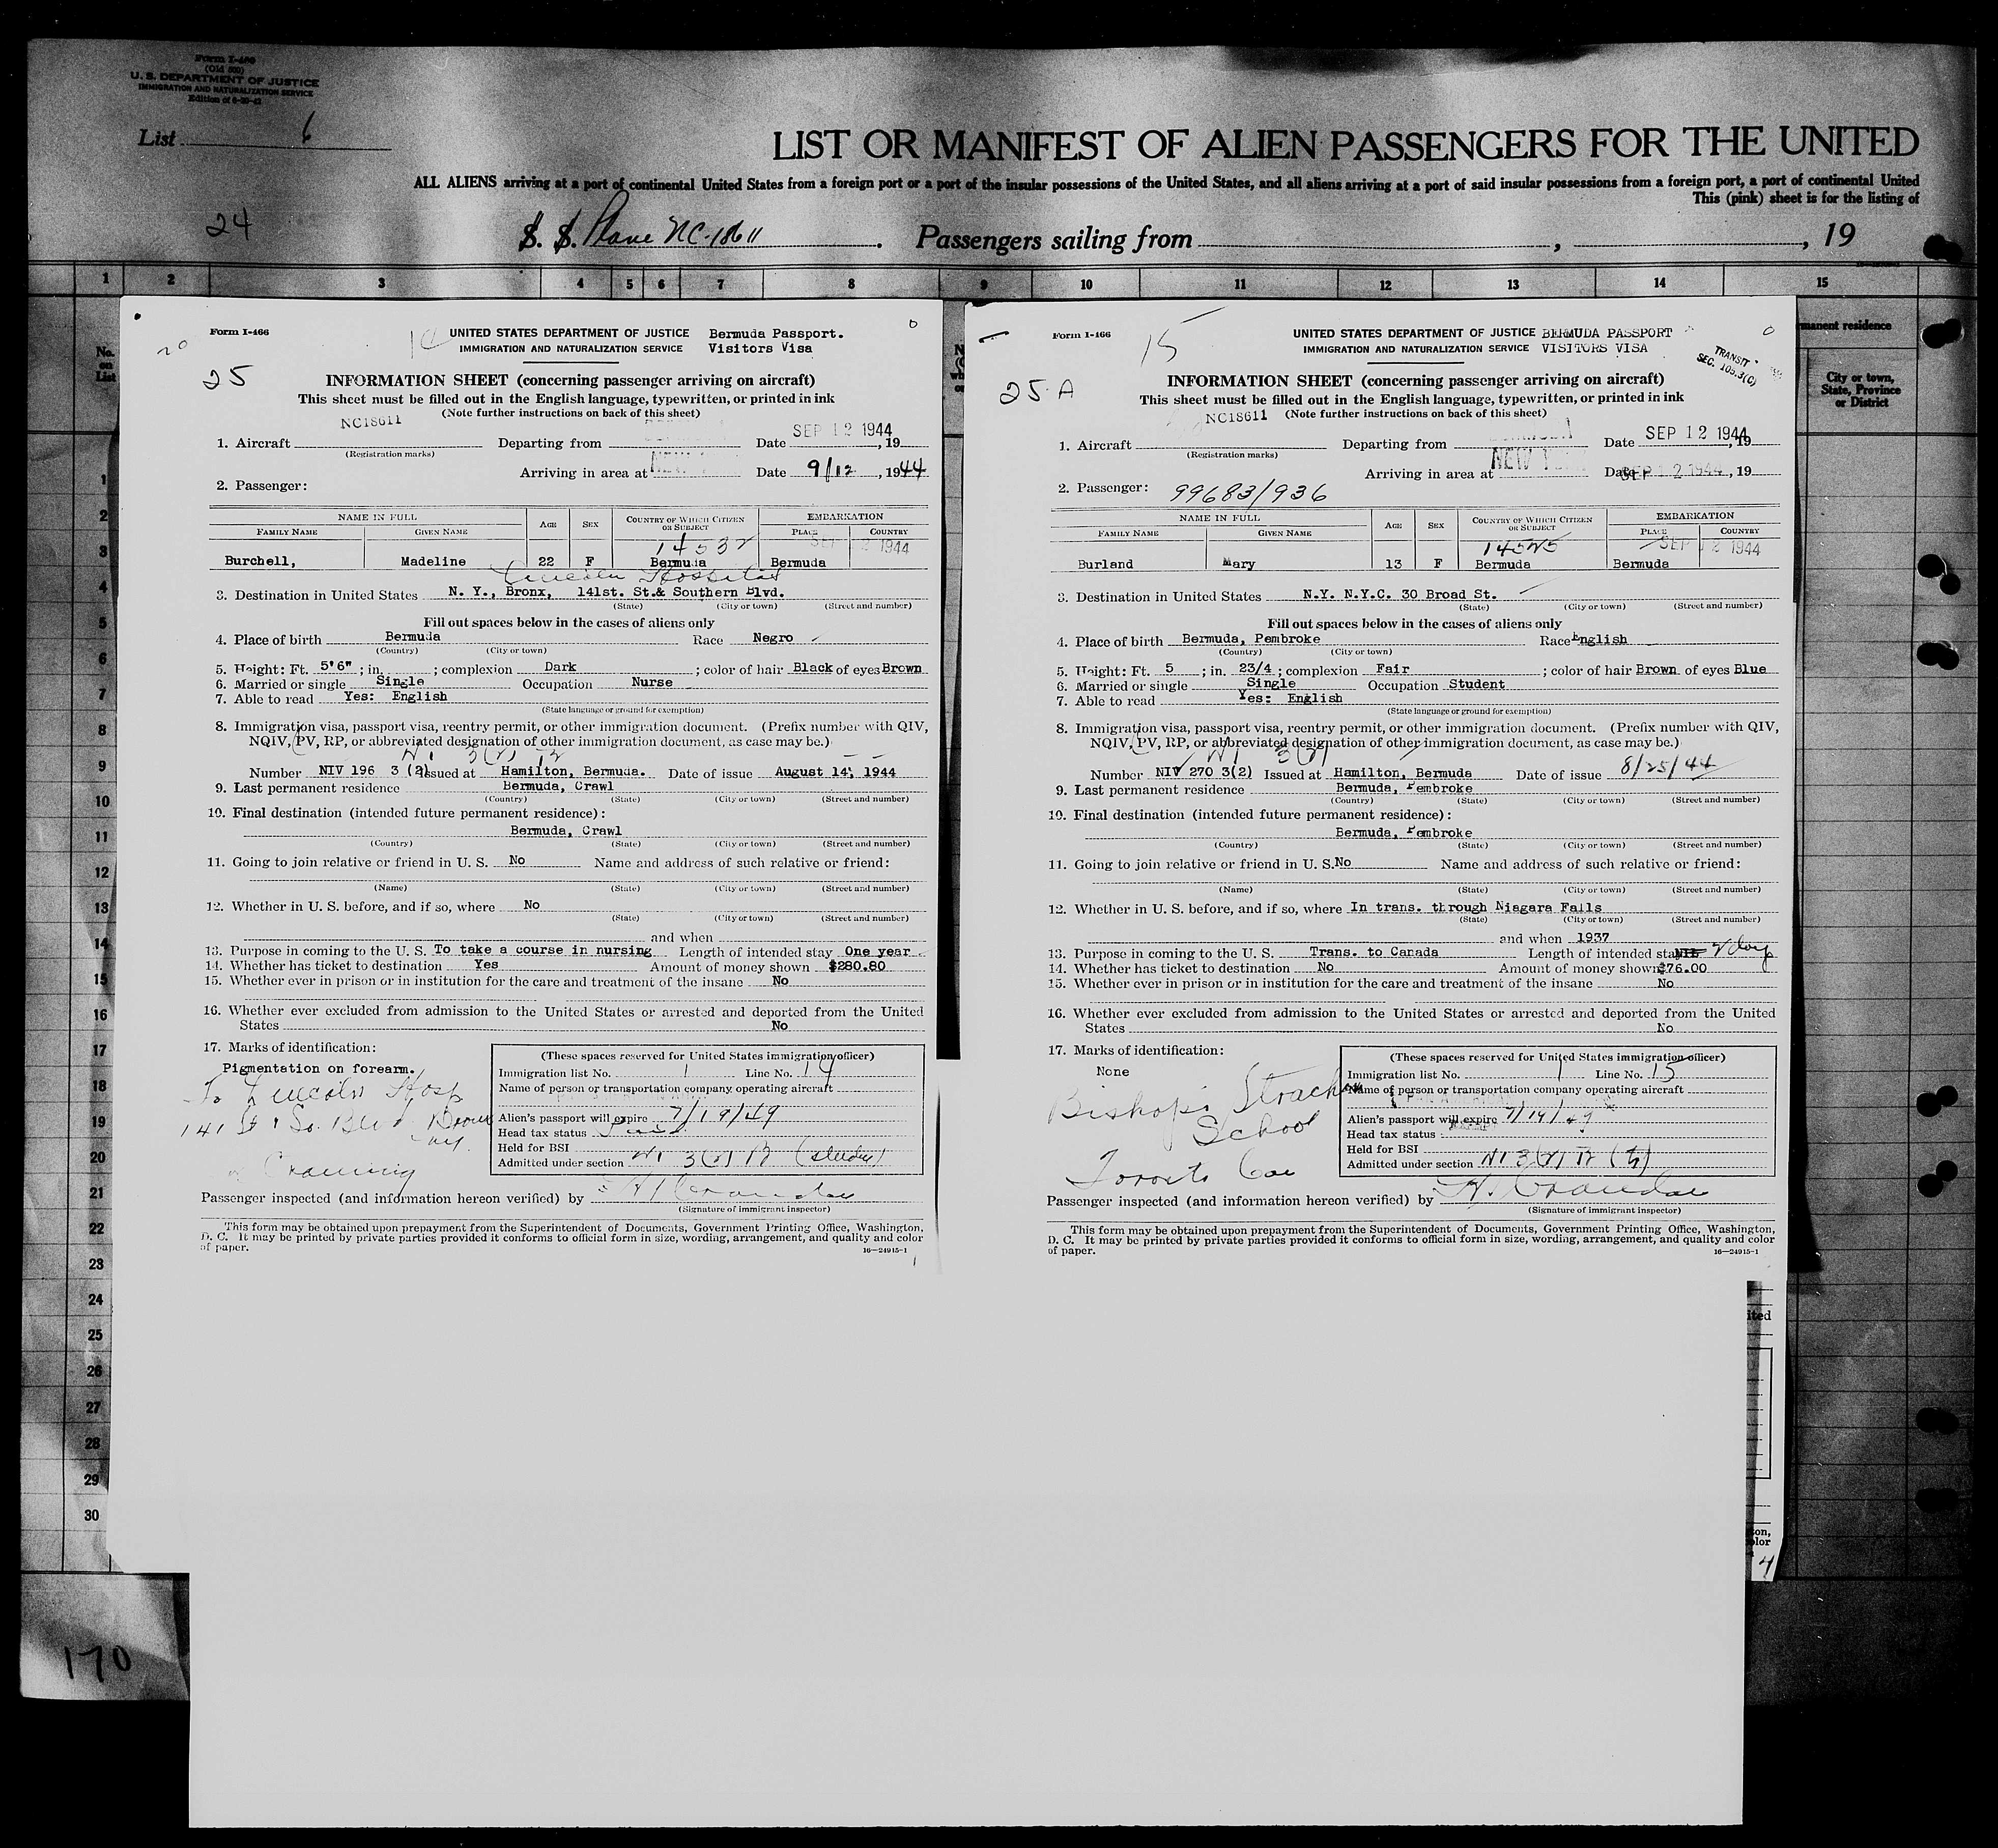 Form I-466
(Old 600)
U. S. DEPARTMENT OF JUSTICE
IMMIGRATION AND NATURALIZATION SERVICE
Edition of 6-20-42
List 6
LIST OR MANIFEST OF ALIEN PASSENGERS FOR THE UNITED
ALL ALIENS arriving at a port of continental United States from a foreign port or a port of the insular possessions of the United States, and all aliens arriving at a port of said insular possessions from a foreign port, a port of continental United
This (pink) sheet is for the listing of
24
S. S. Plane NC-18611 . Passengers sailing from , , 19
1 2 3 4 5 6 7 8 9 10 11 12 13 14 15
No. on List
manent residence
City or town, State, Province or District
1
2
3
4
5
6
7
8
9
10
11
12
13
14
15
16
17
18
19
20
21
22
23
24
25
26
27
28
29
30
170
Form I-466
UNITED STATES DEPARTMENT OF JUSTICE Bermuda Passport.
IMMIGRATION AND NATURALIZATION SERVICE Visitors Visa
25
INFORMATION SHEET (concerning passenger arriving on aircraft)
This sheet must be filled out in the English language, typewritten, or printed in ink
(Note further instructions on back of this sheet)
NC18611
SEP 12 1944
1. Aircraft Departing from Date , 19
(Registration marks)
Arriving in area at NEW Date 9/12 , 1944
2. Passenger:
NAME IN FULL AGE SEX COUNTRY OF WHICH CITIZEN OR SUBJECT EMBARKATION
FAMILY NAME GIVEN NAME PLACE COUNTRY
14532 SEP 12 1944
Burchell, Madeline 22 F Bermuda Bermuda
Lincoln Hospital
3. Destination in United States N. Y., Bronx, 141st. St.& Southern Blvd.
(State) (City or town) (Street and number)
Fill out spaces below in the cases of aliens only
4. Place of birth Bermuda Race Negro
(Country) (City or town)
5. Height: Ft. 5'6" ; in. ; complexion Dark ; color of hair Black of eyes Brown
6. Married or single Single Occupation Nurse
7. Able to read Yes: English
(State language or ground for exemption)
8. Immigration visa, passport visa, reentry permit, or other immigration document. (Prefix number with QIV,
NQIV, PV, RP, or abbreviated designation of other immigration document, as case may be.)
Number NIV 196 3 (2) Issued at Hamilton, Bermuda. Date of issue August 14, 1944
9. Last permanent residence Bermuda, Crawl
(Country) (State) (City or town) (Street and number)
10. Final destination (intended future permanent residence):
Bermuda, Crawl
(Country) (State) (City or town) (Street and number)
11. Going to join relative or friend in U. S. No Name and address of such relative or friend:
(Name) (State) (City or town) (Street and number)
12. Whether in U. S. before, and if so, where No
(State) (City or town) (Street and number)
and when
13. Purpose in coming to the U. S. To take a course in nursing Length of intended stay One year
14. Whether has ticket to destination Yes Amount of money shown $280.80
15. Whether ever in prison or in institution for the care and treatment of the insane No
16. Whether ever excluded from admission to the United States or arrested and deported from the United
States No
17. Marks of identification:
Pigmentation on forearm.
To Lincoln Hosp
141 St & So. Blvd Bronx
NY.
(These spaces reserved for United States immigration officer)
Immigration list No. 1 Line No. 14
Name of person or transportation company operating aircraft
Alien's passport will expire 7/19/49
Head tax status
Held for BSI
Admitted under section 3(2) (student)
Passenger inspected (and information hereon verified) by
(Signature of immigrant inspector)
This form may be obtained upon prepayment from the Superintendent of Documents, Government Printing Office, Washington,
D. C. It may be printed by private parties provided it conforms to official form in size, wording, arrangement, and quality and color
of paper. 16—24915-1
Form I-466
15
UNITED STATES DEPARTMENT OF JUSTICE BERMUDA PASSPORT
IMMIGRATION AND NATURALIZATION SERVICE VISITORS VISA
TRANSIT
SEC. 105.3(C)
25-A
INFORMATION SHEET (concerning passenger arriving on aircraft)
This sheet must be filled out in the English language, typewritten, or printed in ink
NC18611 (Note further instructions on back of this sheet)
SEP 12 1944
1. Aircraft Departing from Date , 19
(Registration marks)
Arriving in area at NEW Date SEP 12 1944 , 19
2. Passenger: 99683/936
NAME IN FULL AGE SEX COUNTRY OF WHICH CITIZEN OR SUBJECT EMBARKATION
FAMILY NAME GIVEN NAME PLACE COUNTRY
14525 SEP 12 1944
Burland Mary 13 F Bermuda Bermuda
3. Destination in United States N.Y. N.Y.C. 30 Broad St.
(State) (City or town) (Street and number)
Fill out spaces below in the cases of aliens only
4. Place of birth Bermuda, Pembroke Race English
(Country) (City or town)
5. Height: Ft. 5 ; in. 23/4 ; complexion Fair ; color of hair Brown of eyes Blue
6. Married or single Single Occupation Student
7. Able to read Yes: English
(State language or ground for exemption)
8. Immigration visa, passport visa, reentry permit, or other immigration document. (Prefix number with QIV,
NQIV, PV, RP, or abbreviated designation of other immigration document, as case may be.)
Number NIV 270 3(2) Issued at Hamilton, Bermuda Date of issue 8/25/44
9. Last permanent residence Bermuda, Pembroke
(Country) (State) (City or town) (Street and number)
10. Final destination (intended future permanent residence):
Bermuda, Pembroke
(Country) (State) (City or town) (Street and number)
11. Going to join relative or friend in U. S. No Name and address of such relative or friend:
(Name) (State) (City or town) (Street and number)
12. Whether in U. S. before, and if so, where In trans. through Niagara Falls
(State) (City or town) (Street and number)
and when 1937
13. Purpose in coming to the U. S. Trans. to Canada Length of intended stay 2 days
14. Whether has ticket to destination No Amount of money shown $76.00
15. Whether ever in prison or in institution for the care and treatment of the insane No
16. Whether ever excluded from admission to the United States or arrested and deported from the United
States No
17. Marks of identification:
None
Bishop's Strachan
School
Toronto Can
(These spaces reserved for United States immigration officer)
Immigration list No. 1 Line No. 15
Name of person or transportation company operating aircraft
Alien's passport will expire 7/19/49
Head tax status
Held for BSI
Admitted under section 3(2)
Passenger inspected (and information hereon verified) by
(Signature of immigrant inspector)
This form may be obtained upon prepayment from the Superintendent of Documents, Government Printing Office, Washington,
D. C. It may be printed by private parties provided it conforms to official form in size, wording, arrangement, and quality and color
of paper. 16—24915-1